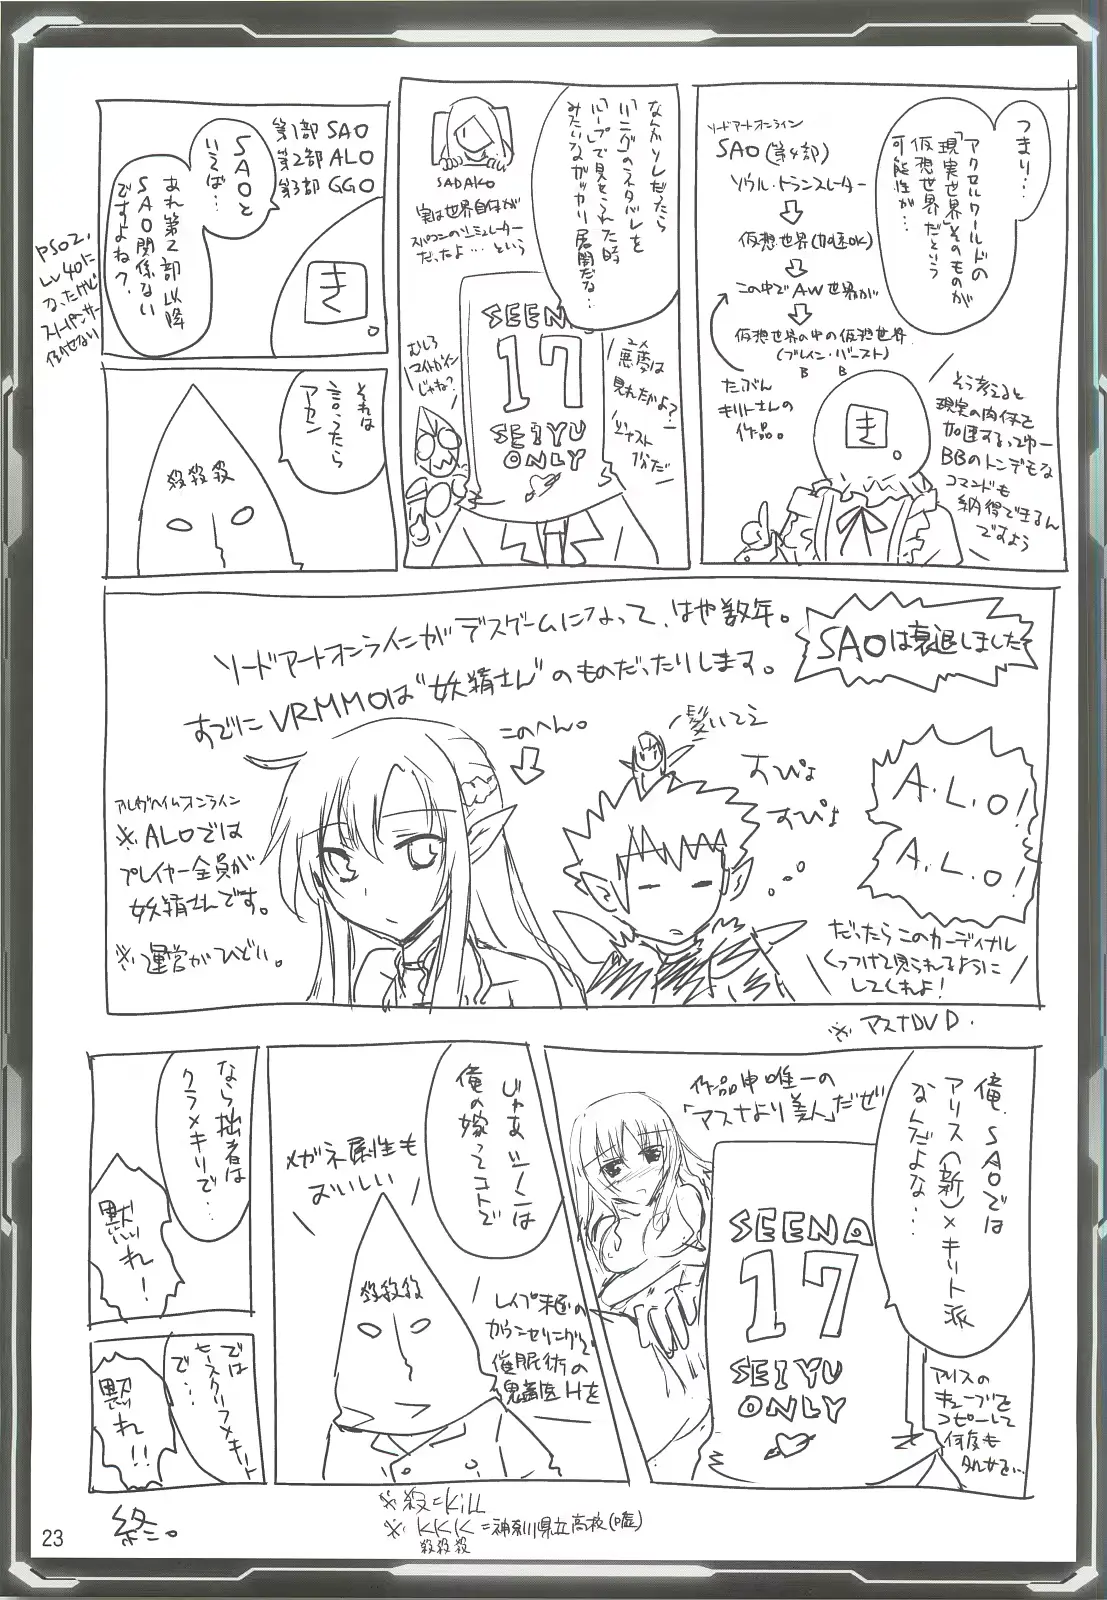 つまり…
アクセルワールドの
「現実世界」そのものが
仮想世界だという
可能性が…
ソードアートオンライン
SAO(第4部)
ソウル・トランスレーター
⇩
仮想世界(加速OK)
⇩
この中でAW世界が
⇩
仮想世界の中の仮想世界
(ブレイン・バースト)
B B
たぶん
キリトさんの
作品。
き。
そう考えると
現実の肉体を
加速するってゆー
BBのトンデモな
コマンドも
納得できるん
ですよう
なんかソレだったら
「リング」のネタバレを
「ループ」で見せられた時
みたいなガッカリ展開だな…
SADAKO
実は世界自体が
スパコンのシミュレーター
だったよ…という
SEENA
17
SEIYU
ONLY
むしろ
マイトガイン
じゃね?
悪夢は
見れたかよ?
第1部 SAO
第2部 ALO
第3部 GGO
SAOと
いえば…
あれ第2部以降
SAO関係ない
ですよね?
き。
PSO2、
Lv40に
なったけど
それは
言ったら
アカン
殺殺殺
SAOは衰退しました
ソードアートオンラインがデスゲームになって、はや数年。
すでにVRMMOは“妖精さん”のものだったりします。
このへん。
⇩
髪いてえ
すぴょ
すぴょ
A.L.O!
A.L.O!
だったらこのカーディナル
くっつけて見られるように
してくれよ!
アルヴヘイムオンライン
※ALOでは
プレイヤー全員が
妖精さんです。
※運営がひどい。
※アスナDVD.
俺、SAOでは
アリス(新)×キリト派
なんだよな…
作品中唯一の
「アスナより美人」だぜ
SEENA
17
SEIYU
ONLY
アリスの
キューブを
コピーして
何度も
じゃあシノンは
俺の嫁ってコトで
メガネ属性も
おいしい
殺殺殺
レイプ未遂の
カウンセリングで
催眠術の
鬼畜医Hを
なら拙者は
クライン×キリで…
黙れ!
では
ヒースクリフ×キリト
で…
黙れ!!
※殺=Kill
※KKK=神奈川県立高校(嘘)
殺殺殺
終。
23